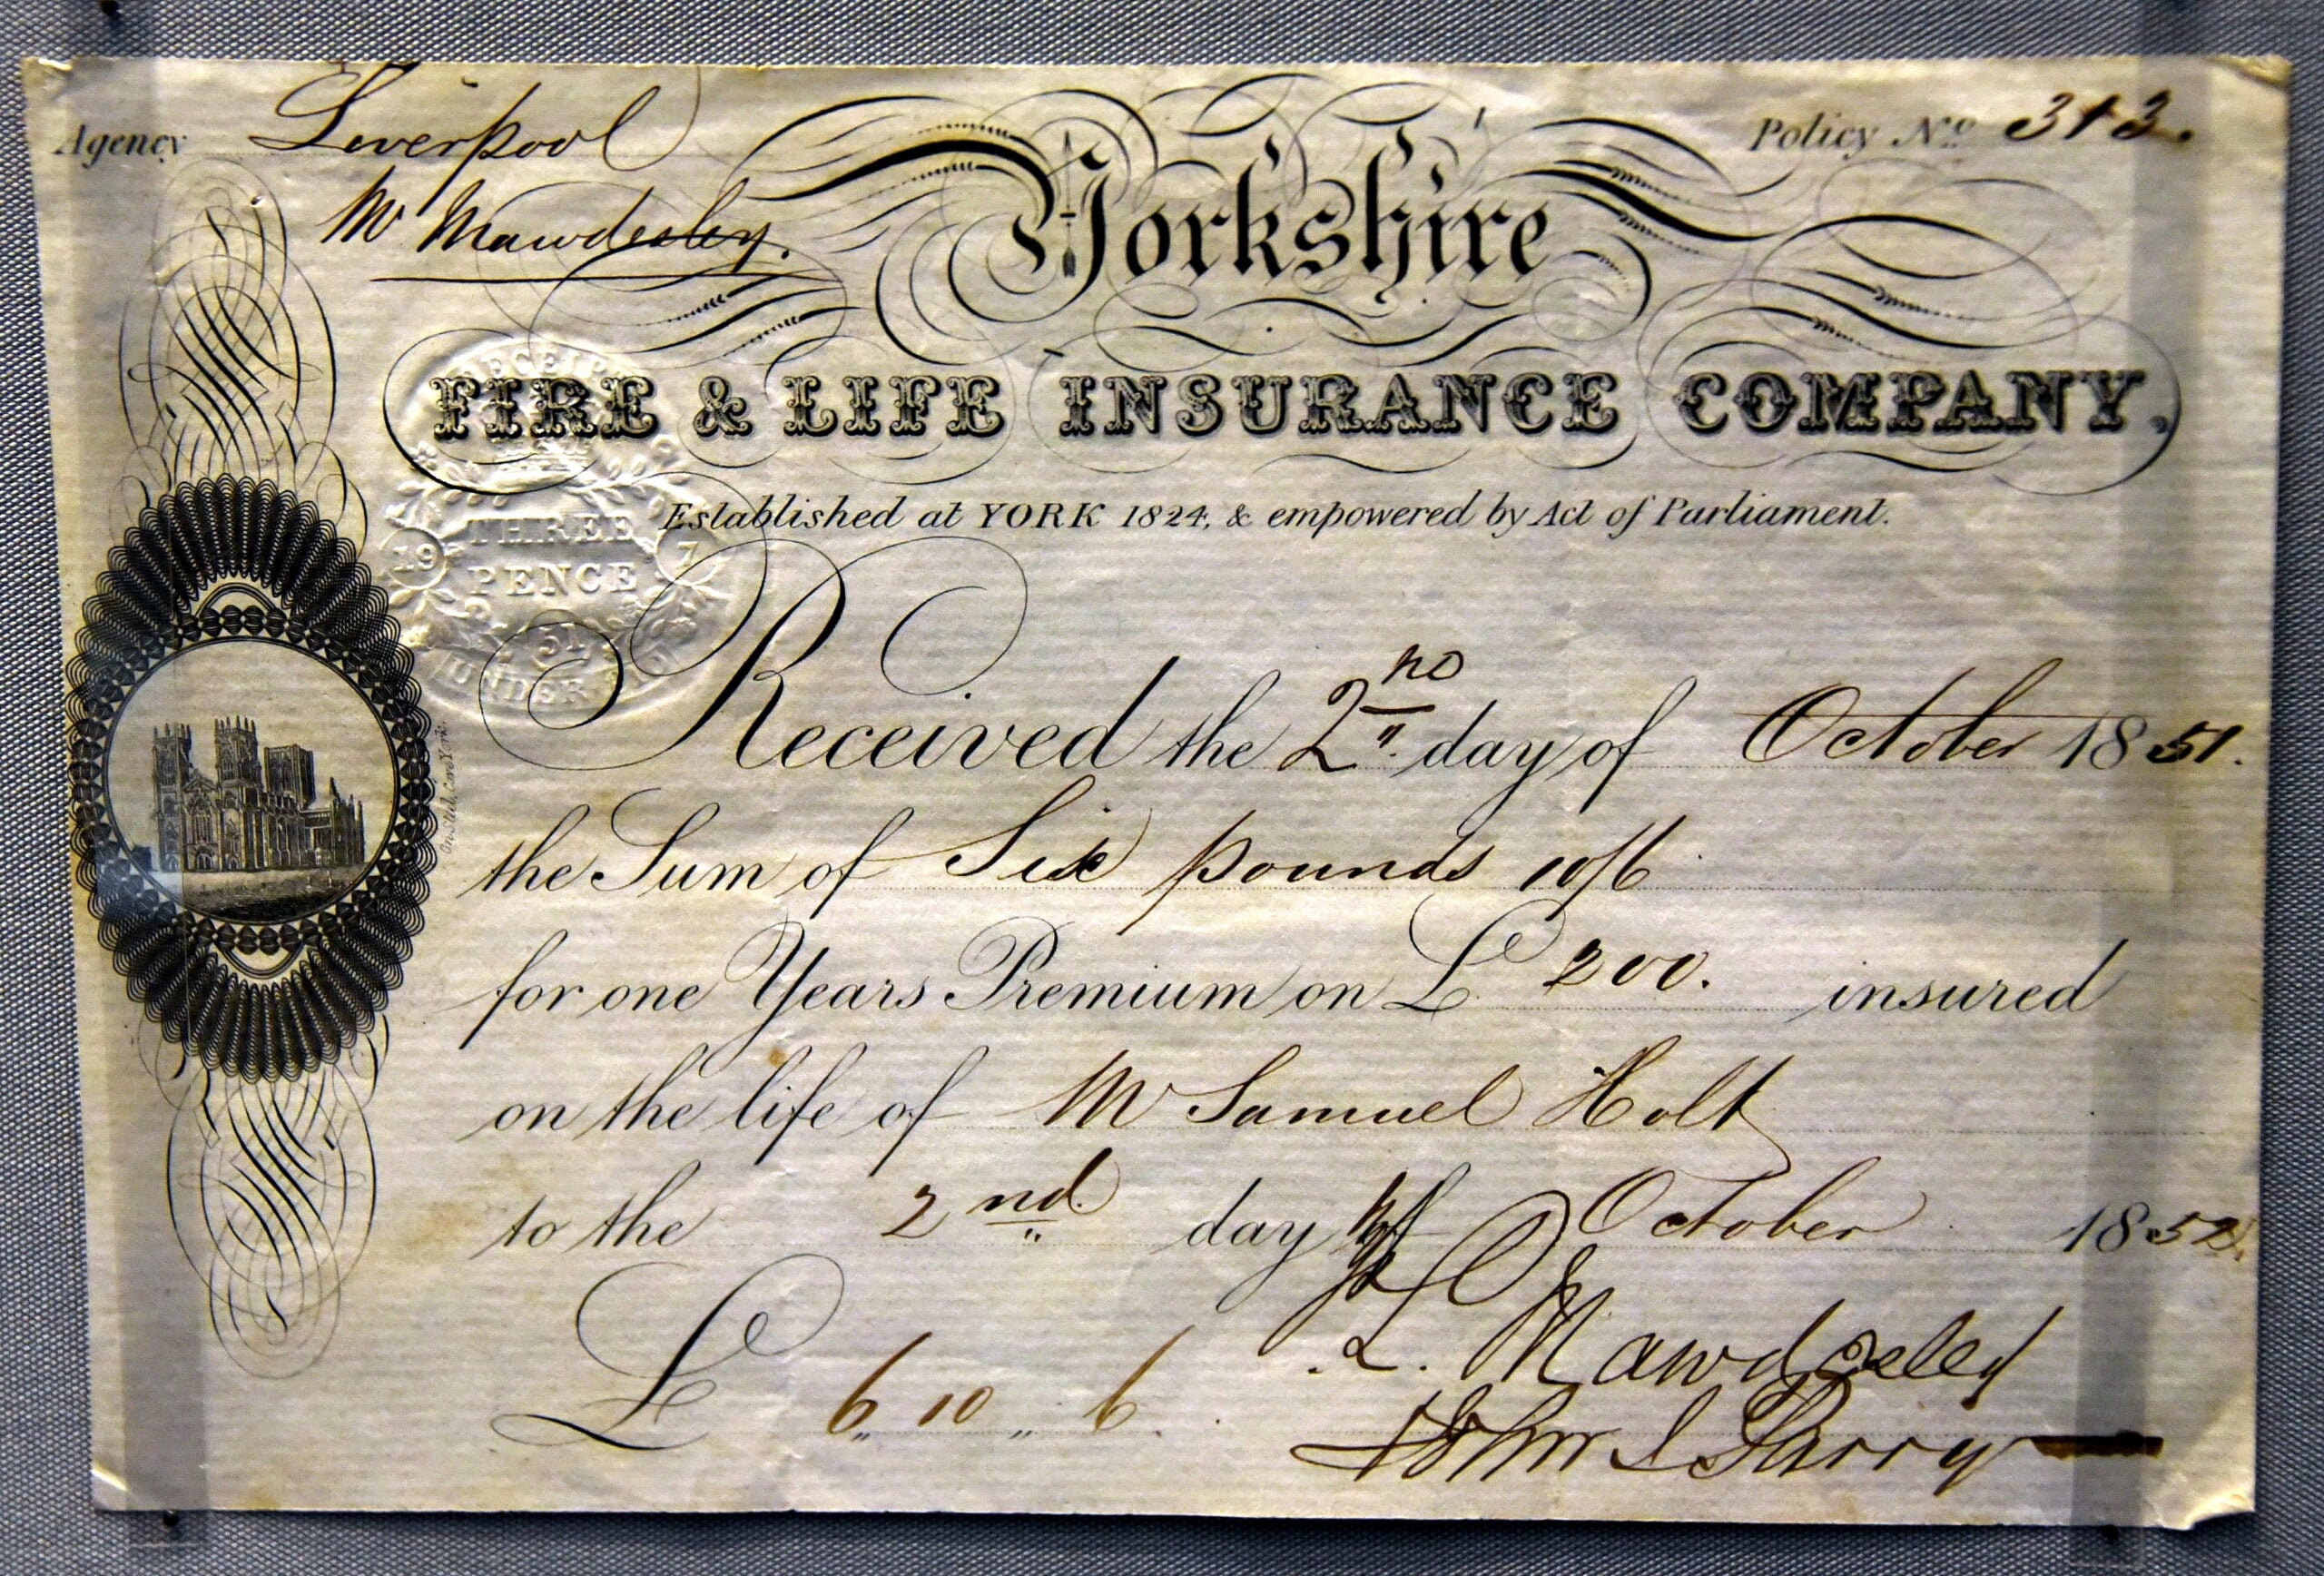 Agency Liverpool
Mr Mawdesley.
Policy No. 313.
Yorkshire
FIRE & LIFE INSURANCE COMPANY.
Established at YORK 1824, & empowered by Act of Parliament.
RECEIPT
THREE
19 7
PENCE
51
UNDER
Received the 2nd day of October 1851.
the Sum of Six pounds 10/6
for one Years Premium on £ 200. insured
on the life of Mr Samuel Holt
to the 2nd day of October 1852.
£ 6 " 10 " 6.
L. Mawdesley
John S Parry